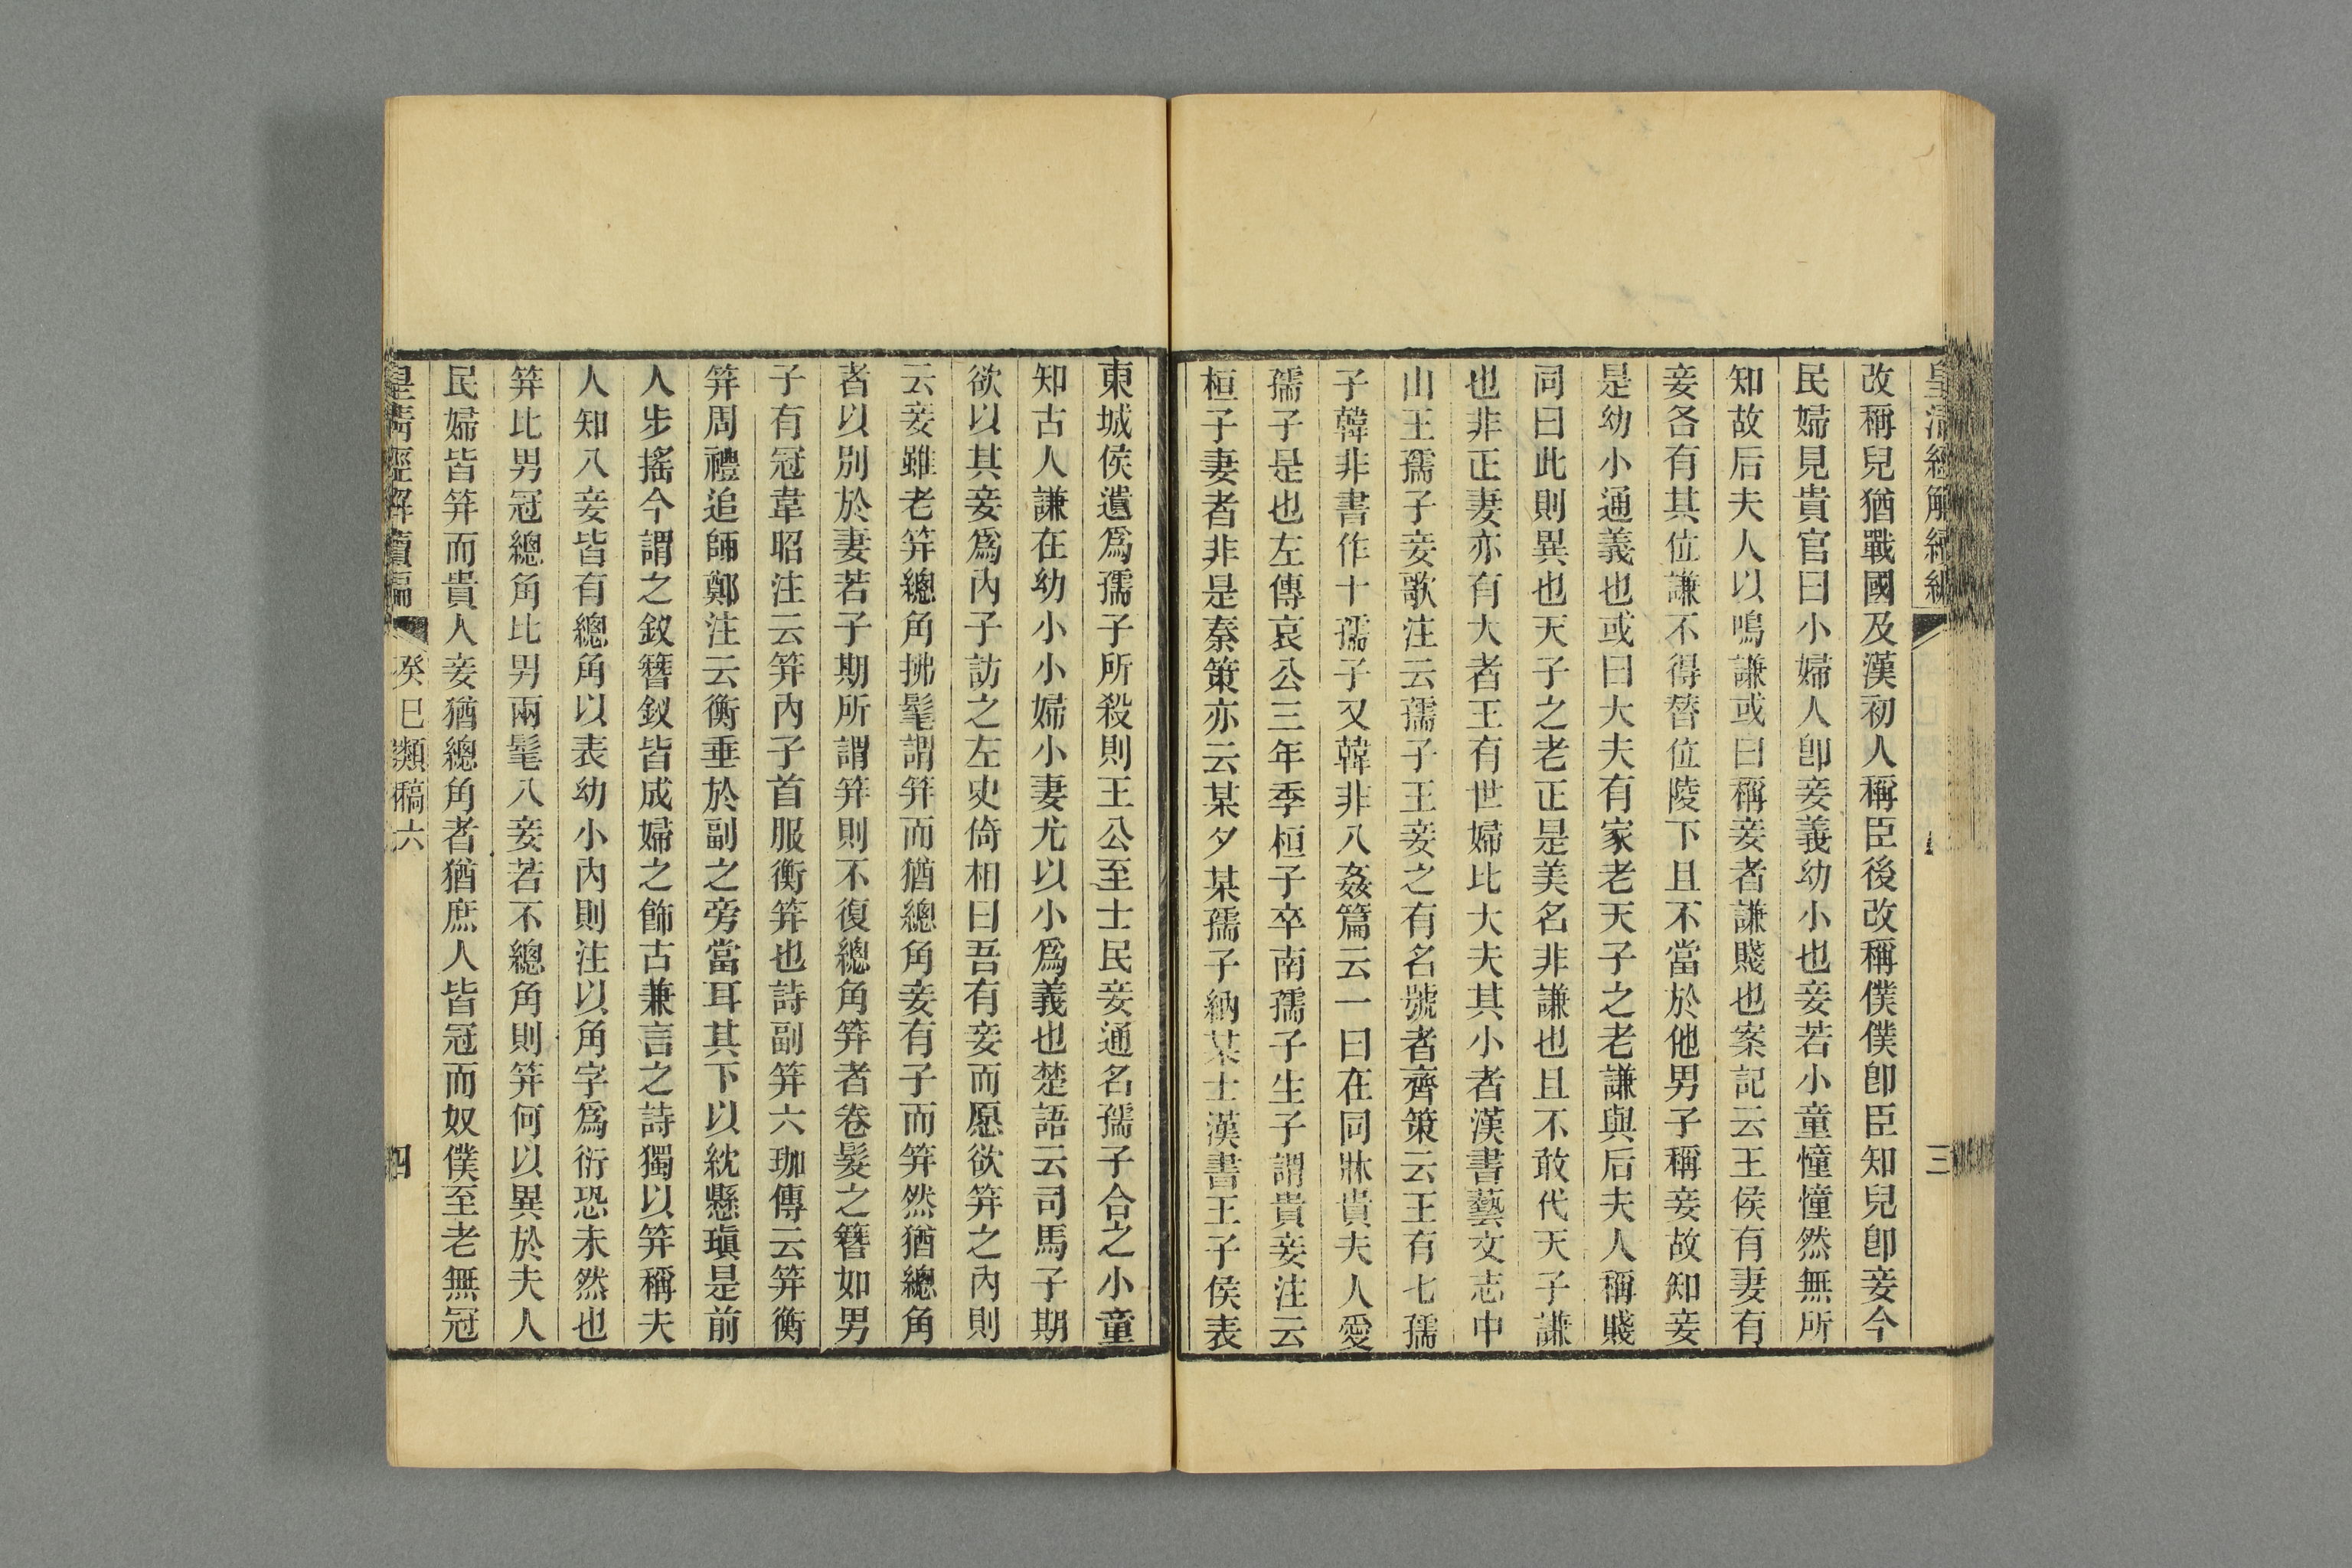 皇清經解續編
三
改稱兒猶戰國及漢初人稱臣後改稱僕僕卽臣知兒卽妾今
民婦見貴官曰小婦人卽妾義幼小也妾若小童憧憧然無所
知故后夫人以鳴謙或曰稱妾者謙賤也案記云王侯有妻有
妾各有其位謙不得替位陵下且不當於他男子稱妾故知妾
是幼小通義也或曰大夫有家老天子之老謙與后夫人稱賤
同曰此則異也天子之老正是美名非謙也且不敢代天子謙
也非正妻亦有大者王有世婦比大夫其小者漢書藝文志中
山王孺子妾歌注云孺子王妾之有名號者齊策云王有七孺
子韓非書作十孺子又韓非八姦篇云一曰在同牀貴夫人愛
孺子是也左傳哀公三年季桓子卒南孺子生子謂貴妾注云
桓子妻者非是秦策亦云某夕某孺子納某士漢書王子侯表
東城侯遺爲孺子所殺則王公至士民妾通名孺子合之小童
知古人謙在幼小小婦小妻尤以小爲義也楚語云司馬子期
欲以其妾爲內子訪之左史倚相曰吾有妾而愿欲笄之內則
云妾雖老笄總角拂髦謂笄而猶總角妾有子而笄然猶總角
者以別於妻若子期所謂笄則不復總角笄者卷髮之簪如男
子有冠韋昭注云笄內子首服衡笄也詩副笄六珈傳云笄衡
笄周禮追師鄭注云衡垂於副之旁當耳其下以紞懸瑱是前
人步搖今謂之釵簪釵皆成婦之飾古兼言之詩獨以笄稱夫
人知八妾皆有總角以表幼小內則注以角字爲衍恐未然也
笄比男冠總角比男兩髦八妾若不總角則笄何以異於夫人
民婦皆笄而貴人妾猶總角者猶庶人皆冠而奴僕至老無冠
皇清經解續編
癸巳類稿六
四